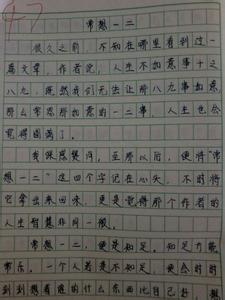 47
常想一二
很久之前，不知在哪里看到过一
篇文章，作者说，人生不如意事十之
八九，既然我们无法让八九事如意，
那么常思那如意的一二事，人生也会
觉得圆满了。
我深感赞同，至那以后，便将“常
想一二”这四个字记在心头，不时将
它拿出来回味，更是觉得那个作者的
人生智慧非同一般。
常想一二，便是知足，知足方能
常乐。一个人若是不知足，便会时时
刻刻想着